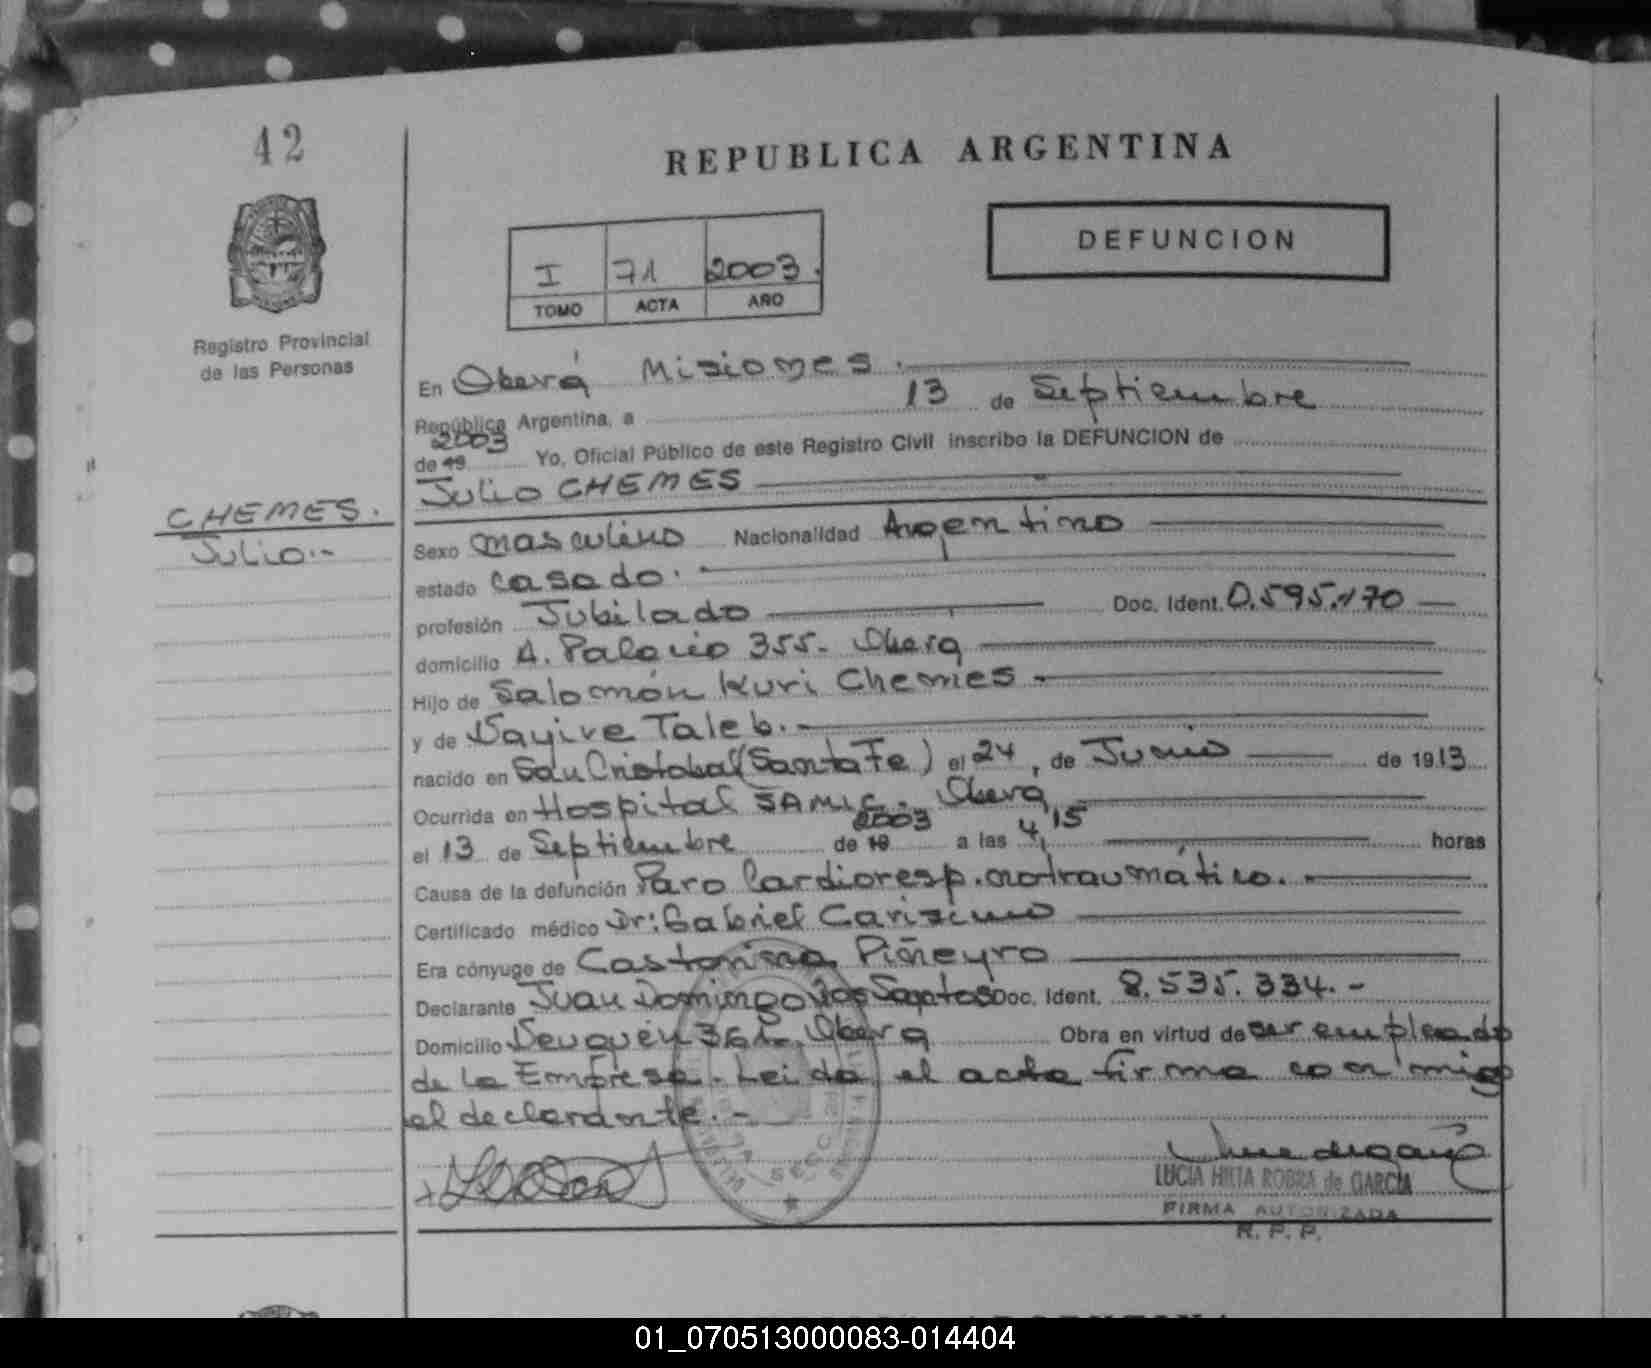 42
REPUBLICA ARGENTINA
DEFUNCION
I 71 2003.
TOMO ACTA AÑO
Registro Provincial
de las Personas
En Oberá Misiones.
República Argentina, a 13 de Septiembre
2003
de 19 Yo, Oficial Público de este Registro Civil inscribo la DEFUNCION de
Julio CHEMES
CHEMES.
Julio.-
Sexo masculino Nacionalidad Argentino
estado casado.
profesión Jubilado Doc. Ident. 0.595.170
domicilio A. Palacio 355. Oberá
Hijo de Salomón Kuri Chemes
y de Nayive Taleb.
nacido en San Cristobal (Santa Fe) el 24, de Junio de 1913
Ocurrida en Hospital SAMIC. Oberá
el 13 de Septiembre de 19 2003 a las 4,15 horas
Causa de la defunción Paro Cardioresp. no traumático.
Certificado médico Dr: Gabriel
Era cónyuge de Castorina Piñeyro
Declarante Juan Domingo Dos Santos Doc. Ident. 8.535.334.-
Domicilio Neuquén Oberá Obra en virtud de ser empleado
de la Empresa. Leida el acta firma conmigo
el declarante.-
LUCIA HILTA ROBRA de GARCIA
FIRMA AUTORIZADA
R. P. P.
01_070513000083-014404